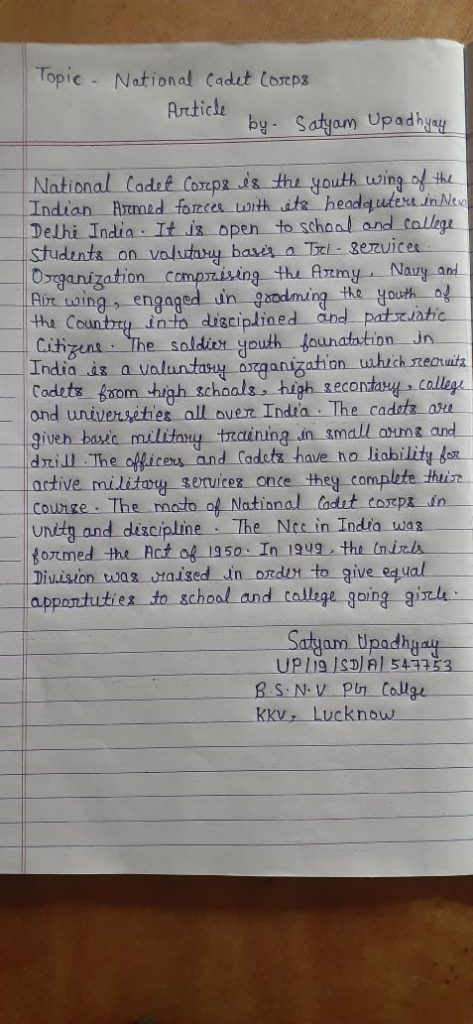 Topic - National Cadet Corps
Article
by - Satyam Upadhyay
National Cadet Corps is the youth wing of the
Indian Armed forces with its headquters in New
Delhi India. It is open to school and college
students on volutary basis a Tri - services
Organization comprising the Army, Navy and
Air wing, engaged in grooming the youth of
the Country into disciplined and patriatic
Citizens. The soldier youth founatation in
India is a valuntary organization which recruits
Cadets from high schools, high secontary, college
and universities all over India. The cadets are
given basic military training in small arms and
drill. The officers and Cadets have no liability for
active military services once they complete their
course. The moto of National Cadet corps in
Unity and discipline. The Ncc in India was
formed the Act of 1950. In 1949, the Girls
Division was raised in order to give equal
apportuties to school and college going girls.
Satyam Upadhyay
UP/19/SD/A/547753
B.S.N.V PG Collge
KKV, Lucknow